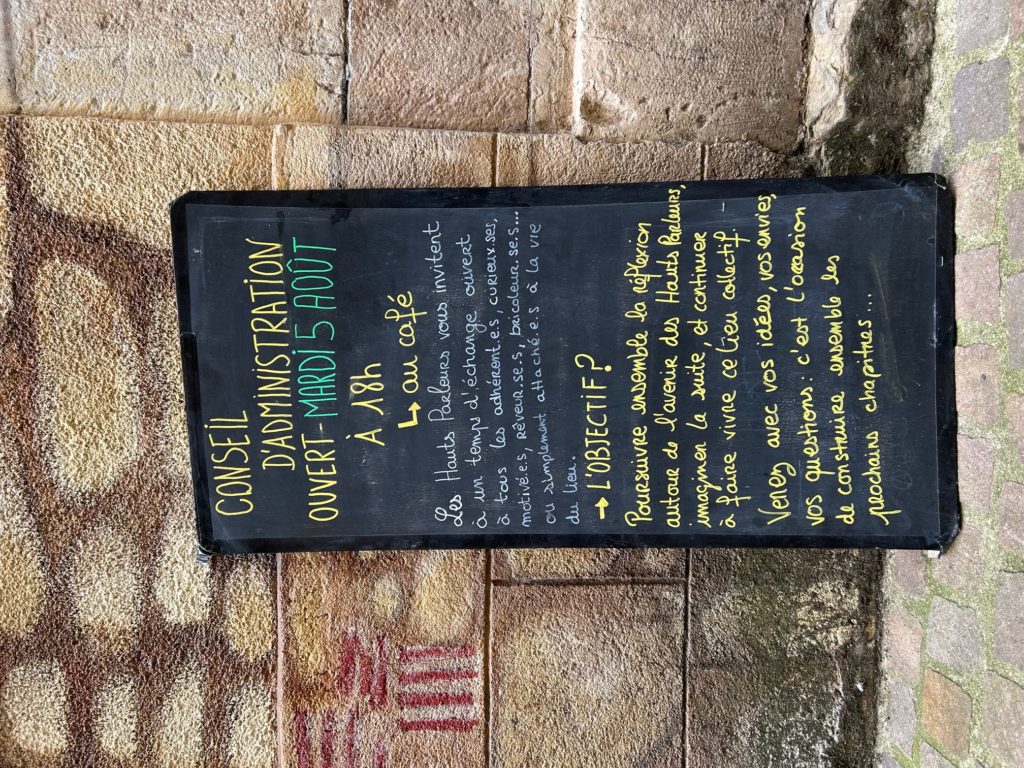 CONSEIL
D'ADMINISTRATION
OUVERT - MARDI 5 AOÛT
À 18h
↳ au café
Les Hauts Parleurs vous invitent
à un temps d'échange ouvert
à tous les adhérent.e.s, curieux.ses,
motivé.e.s, rêveur.se.s, bricoleur.se.s...
ou simplement attaché.e.s à la vie
du lieu.
→ L'OBJECTIF ?
Poursuivre ensemble la réflexion
autour de l'avenir des Hauts Parleurs,
immaginer la suite, et continuer
à faire vivre ce lieu collectif.
Venez avec vos idées, vos envies,
vos questions : c'est l'occasion
de construire ensemble les
prochains chapitres...